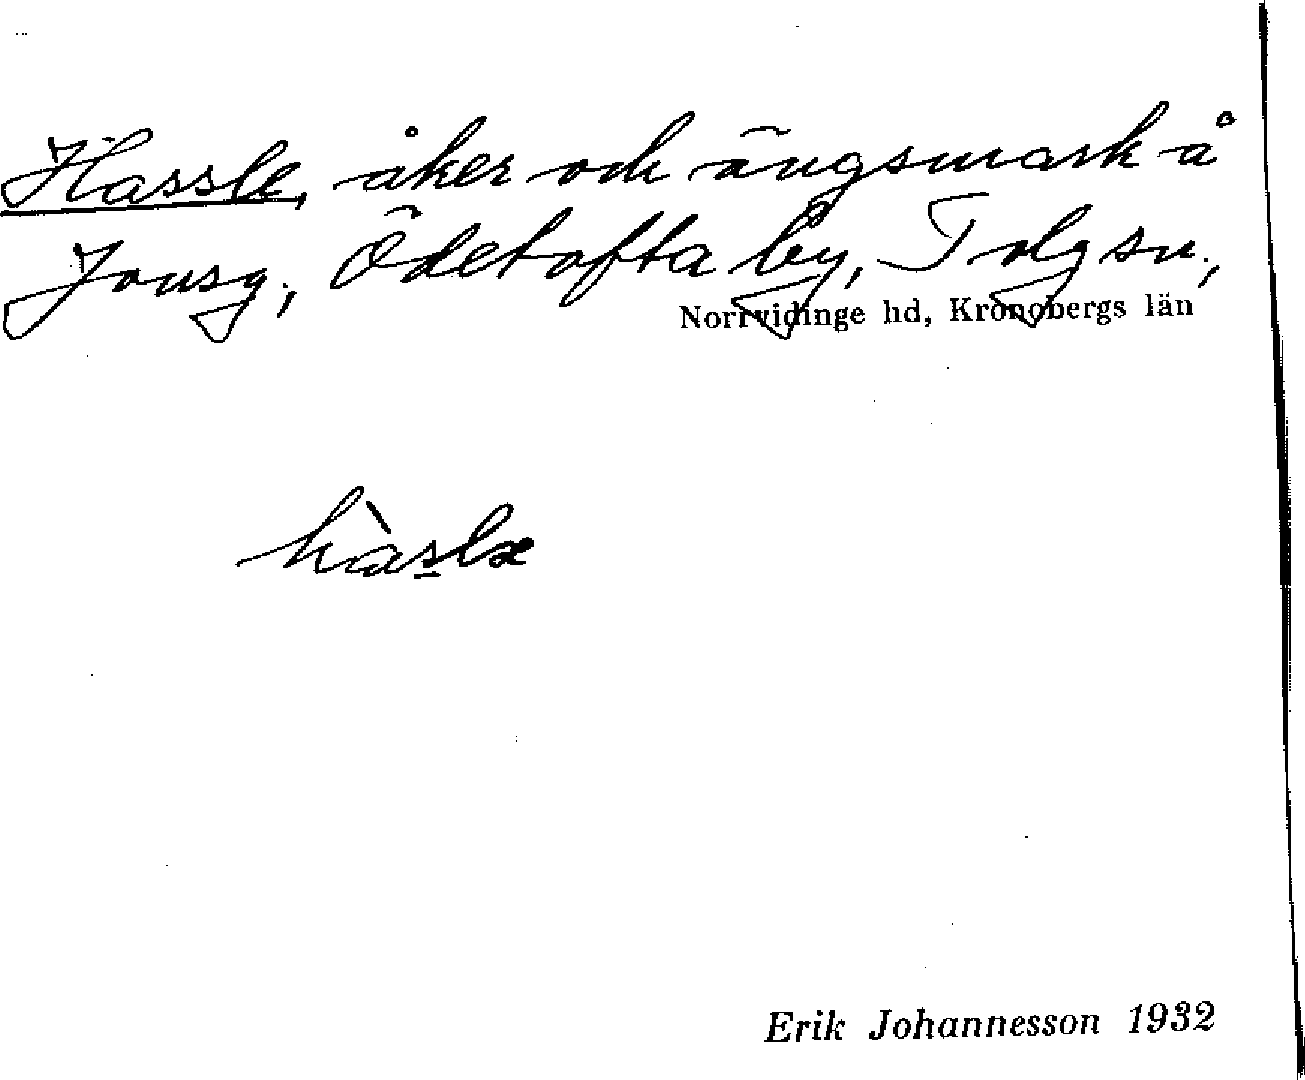 Hassle, åker och ängsmark å
Jonsg., Ödetofta by, Tolg sn.,
Norrvidinge hd, Kronobergs län
hàslx
Erik Johannesson 1932